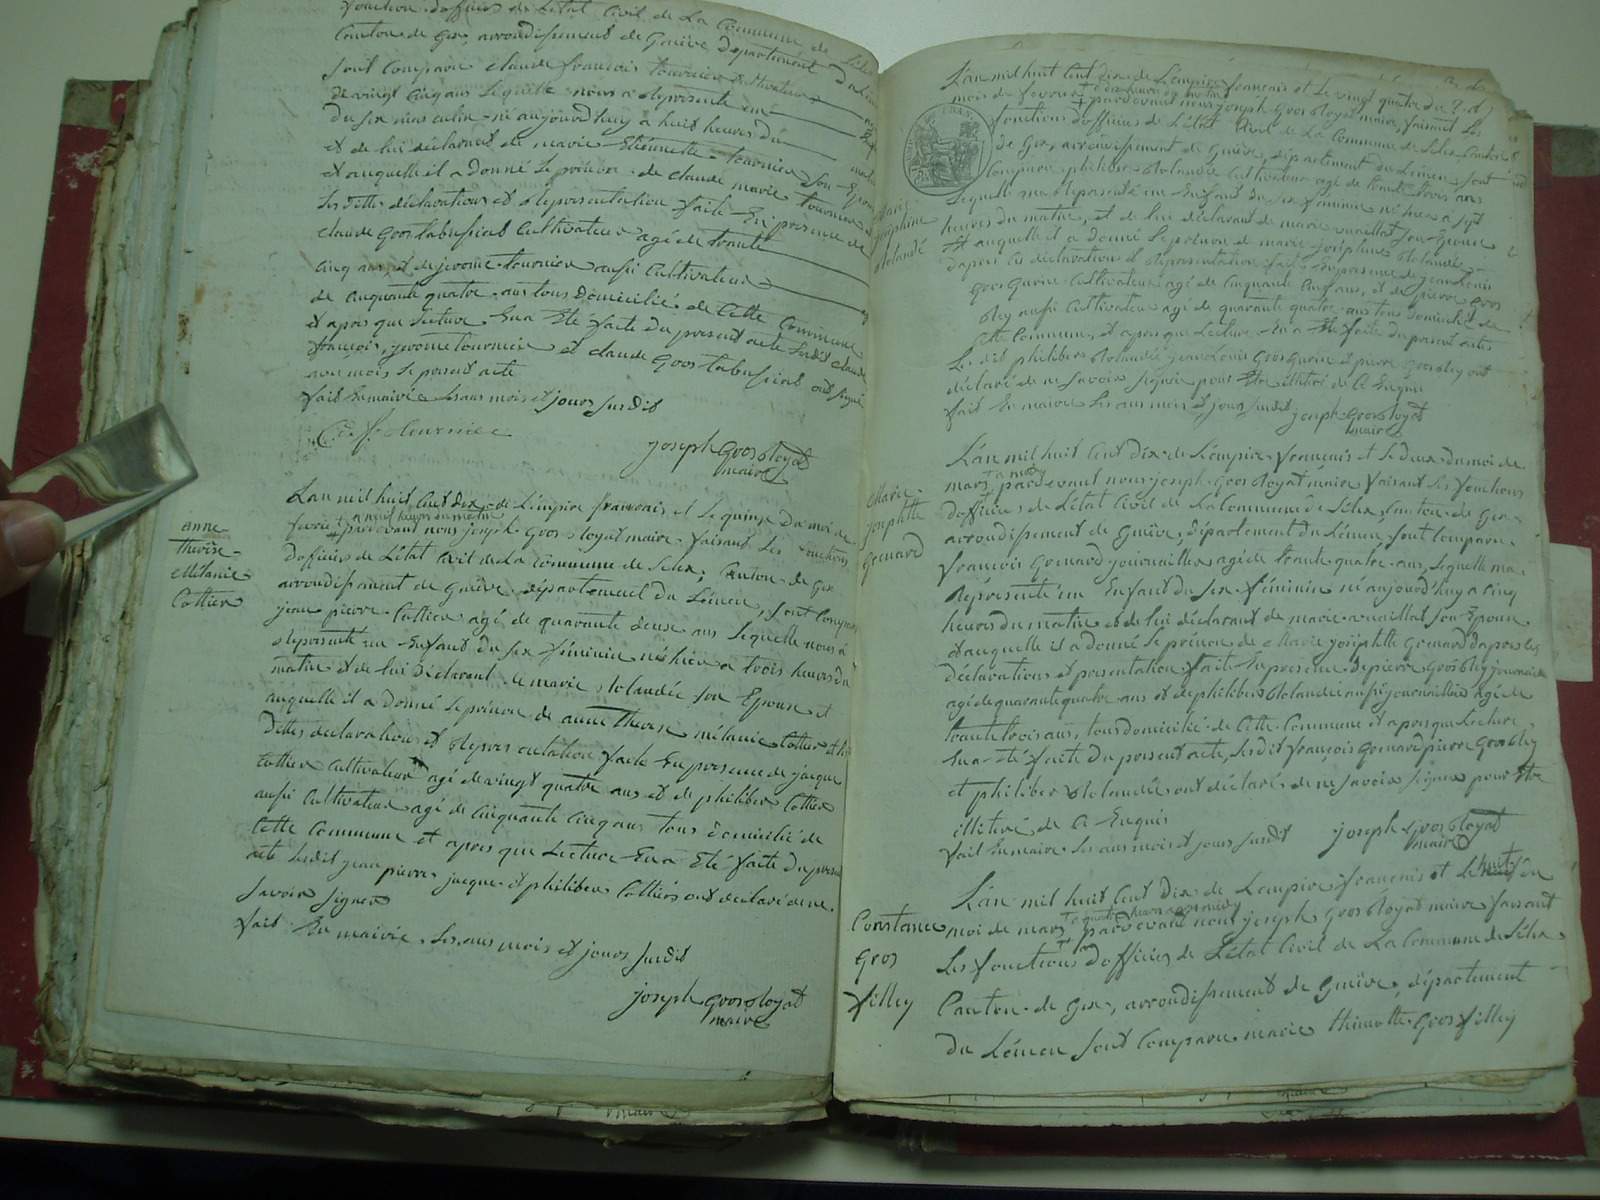 fonction d'officier de l'état Civil de La Commune de Lelex
Canton de Gex, arrondissement de Genève département du Léman
sont Comparu claude françois tournier Cultivateur
de vingt Cinq ans Lequelle nous a Représenté un
du sex masculin né aujourd'huy a huit heures du
et de lui déclarant de marie Etiennette tournier son Epouse
et auquelle il a donné Le prénom de claude marie tournier
Les dittes déclaration et Représentation faite En présence de
claude Gros Cultivateur agé de trente
cinq ans, et de jerome tournier aussi Cultivateur
de cinquante quatre ans tous Domicilié de Cette Commune
Et apres que Lecture En a Eté faite du présent acte Lesdit claude
françois, jerome tournier et claude Gros ont signé
avec nous Le présent acte
fait En mairie Les ans mois et jours susdit
C. f. tournier
joseph Gros Royat
maire
anne
therese
Mélanie
Cottier
Lan mil huit Cent dix de L'empire francais et Le quinze du moi de
fevrier pardevant nous joseph Gros Royat maire faisant Les fonctions
Dofficier de L'état Civil de La Commune de Lelex, Canton de Gex
arrondissement de Genève, département du Lémen, sont Comparu
jean pierre Cottier agé de quarante deux ans Lequelle nous a
Représenté un Enfant du sex féminin né hier a trois heures du
matin et de lui Déclarant de marie Rolandée son Epouse et
auquelle il a donné Le prénom de anne therese mélanie Cottier et les
Dittes déclaration et Représentation faite En présence de jacque
Cottier Cultivateur agé de vingt quatre ans et de philiber Cottier
aussi Cultivateur agé de Cinquante Cinq ans tous domicilié de
Cette Commune et apres que Lecture En a Eté faite du présent
acte Lesdit jean pierre, jacque et philiber Cottier ont déclaré de ne
savoir signer
fait En mairie Les ans mois et jours susdit
joseph Gros Royat
maire
Marie
josephine
Rolandé
L'an mil huit Cent dix de L'empire francais et Le vingt quatre du
mois de fevrier pardevant nous joseph Gros Royat maire, faisant Les
fonctions d'officier de L'état Civil de La Commune de Lelex Canton
de Gex, arrondissement de Genève, département du Lémen, sont
Comparu philiber Rolandée Cultivateur agé de trente trois ans
Lequelle nous a Représenté un Enfant du sex féminin né hier a sept
heures du matin, et de lui déclarant de marie vuaillat son Epouse
Et auquelle il a donné Le prénom de marie josephine Rolandée
Dapres Les déclaration et Représentation faite En présence de jean Louis
Gros Gurin Cultivateur agé de Cinquante Cinq ans, et de pierre Gros
bley aussi Cultivateur agé de quarante quatre ans tous domicilié de
Cette Commune, et apres que Lecture En a Eté faite du présent acte
Lesdit philiber Rolandée jean Louis Gros Gurin et pierre Gros bley ont
déclaré de ne savoir signer pour Etre illitéré de Ce Enquis
fait En mairie Les ans mois et jours susdit joseph Gros Royat
maire
Marie
josephtte
Grenard
L'an mil huit Cent dix de L'empire francais et Le deux du moi de
mars pardevant nous joseph Gros Royat maire faisant Les fonctions
d'officier de L'état Civil de La Commune de Lelex, Canton de Gex
arrondissement de Genève, département du Lémen, sont Comparu
françois Grenard journaillier agé de trente quatre ans, Lequelle ma
Représenté un Enfant du sex féminin né aujourd'huy a Cinq
heures du matin et de lui déclarant de marie vuaillat son Epouse
Et auquelle il a donné Le prénom de Marie josephtte Grenard dapres Les
déclarations et présentation faite En présence de pierre Gros bley journaillier
agé de quarante quatre ans et de philiber Rolandée aussi journaillier agé de
trante trois ans, tous domicilié de Cette Commune et apres que Lecture
En a été faite du présent acte, Lesdit françois Grenard pierre Gros bley
et philiber Rolandée ont déclaré de ne savoir signer pour Etre
illitéré de Ce Enquis
fait En mairie Les ans mois et jours susdit joseph Gros Royat
maire
Constance
Gros
filley
L'an mil huit Cent dix de L'empire francais et Le huit du
moi de mars a quatre heures apres midy pardevant nous joseph Gros Royat maire faisant
Les fonctions d'officier de L'état Civil de La Commune de Lelex
Canton de Gex, arrondissement de Genève, département
du Lémen sont Comparu marie thimotte Gros filley